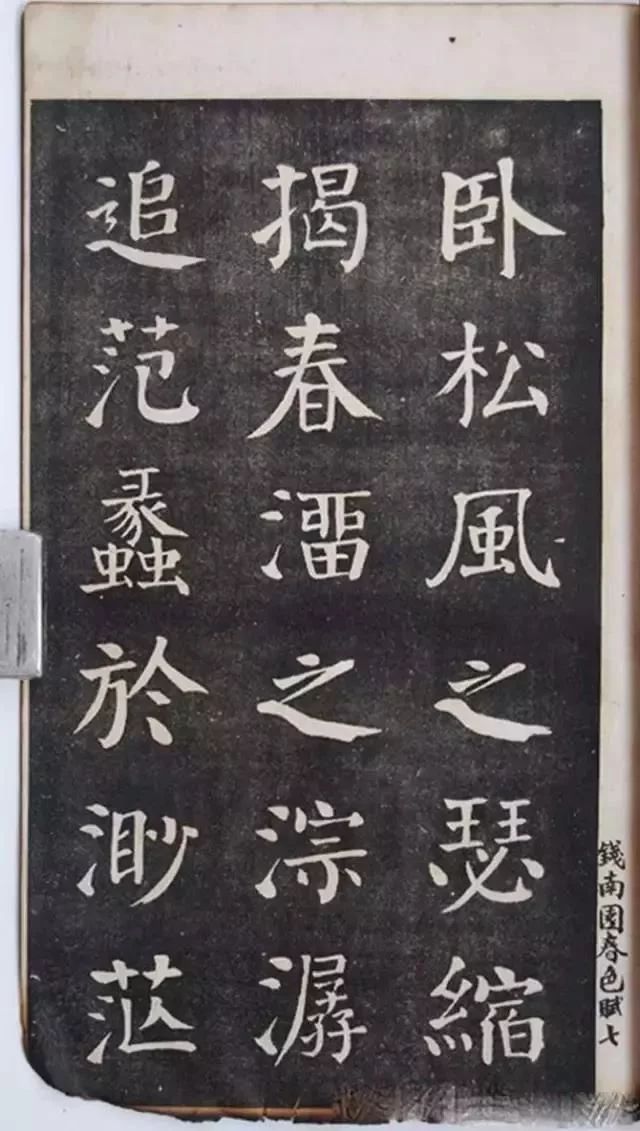 錢南園春色賦七
卧松風之瑟縮
揭春溜之淙潺
追范蠡於渺茫